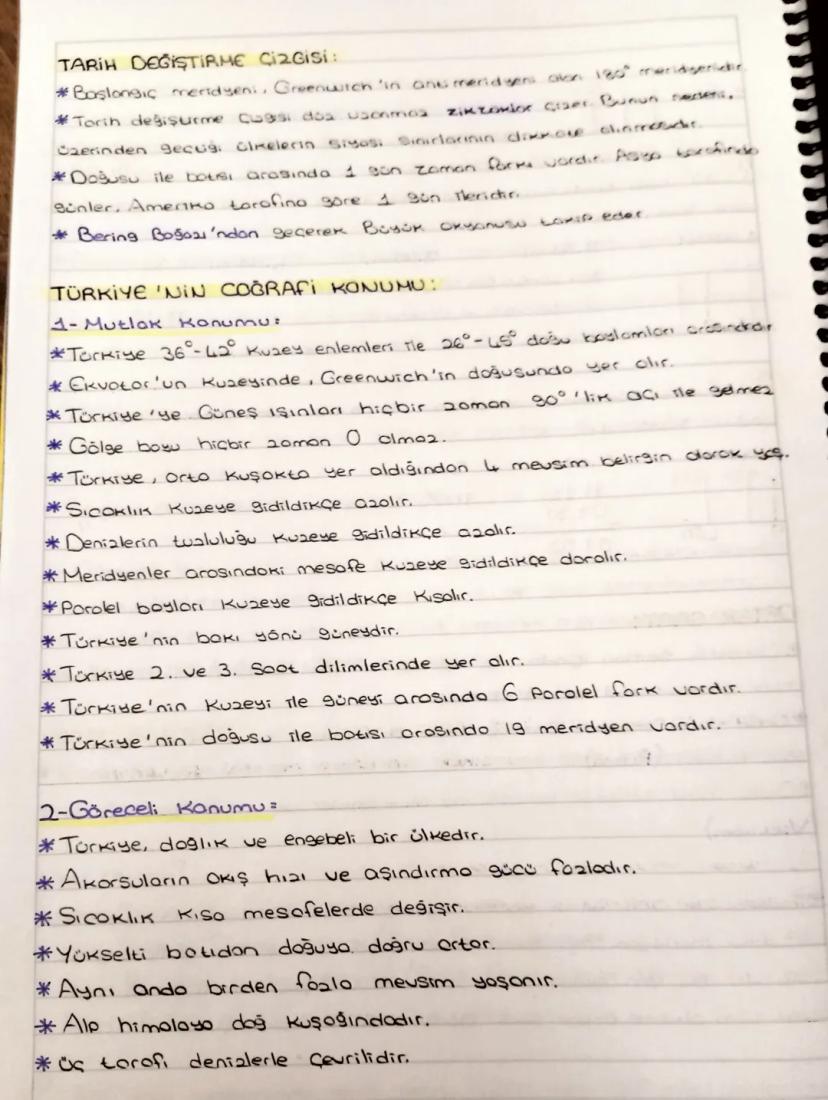 TARİH DEĞİŞTİRME ÇİZGİSİ:
* Başlangıç meridyeni, Greenwich'in anti meridyeni olan 180° meridyenidir.
* Tarih değiştirme çizgisi düz uzanmaz zikzaklar çizer. Bunun nedeni,
üzerinden geçtiği ülkelerin siyasi sınırlarının dikkate alınmasıdır.
* Doğusu ile batısı arasında 1 gün zaman farkı vardır. Asya tarafında
günler, Amerika tarafına göre 1 gün ileridir.
* Bering Boğazı'ndan geçerek Büyük okyanusu takip eder.
TÜRKİYE'NİN COĞRAFİ KONUMU:
1- Mutlak Konumu:
* Türkiye 36°-42° Kuzey enlemleri ile 26°-45° doğu boylamları arasındadır
* Ekvator'un Kuzeyinde, Greenwich'in doğusunda yer alır.
* Türkiye'ye Güneş ışınları hiçbir zaman 90°'lik açı ile gelmez
* Gölge boyu hiçbir zaman 0 olmaz.
* Türkiye, orta kuşakta yer aldığından 4 mevsim belirgin olarak yaş.
* Sıcaklık Kuzeye gidildikçe azalır.
* Denizlerin tuzluluğu Kuzeye gidildikçe azalır.
* Meridyenler arasındaki mesafe Kuzeye gidildikçe daralır.
* Paralel boyları Kuzeye gidildikçe Kısalır.
* Türkiye'nin bakı yönü güneydir.
* Türkiye 2. ve 3. Saat dilimlerinde yer alır.
* Türkiye'nin Kuzeyi ile güneyi arasında 6 Paralel fark vardır.
* Türkiye'nin doğusu ile batısı arasında 19 meridyen vardır.
2-Göreceli Konumu:
* Türkiye, dağlık ve engebeli bir ülkedir.
* Akarsuların akış hızı ve aşındırma gücü fazladır.
* Sıcaklık Kısa mesafelerde değişir.
* Yükselti batıdan doğuya doğru artar.
* Aynı anda birden fazla mevsim yaşanır.
* Alp himalaya dağ Kuşağındadır.
* üç tarafı denizlerle çevrilidir.